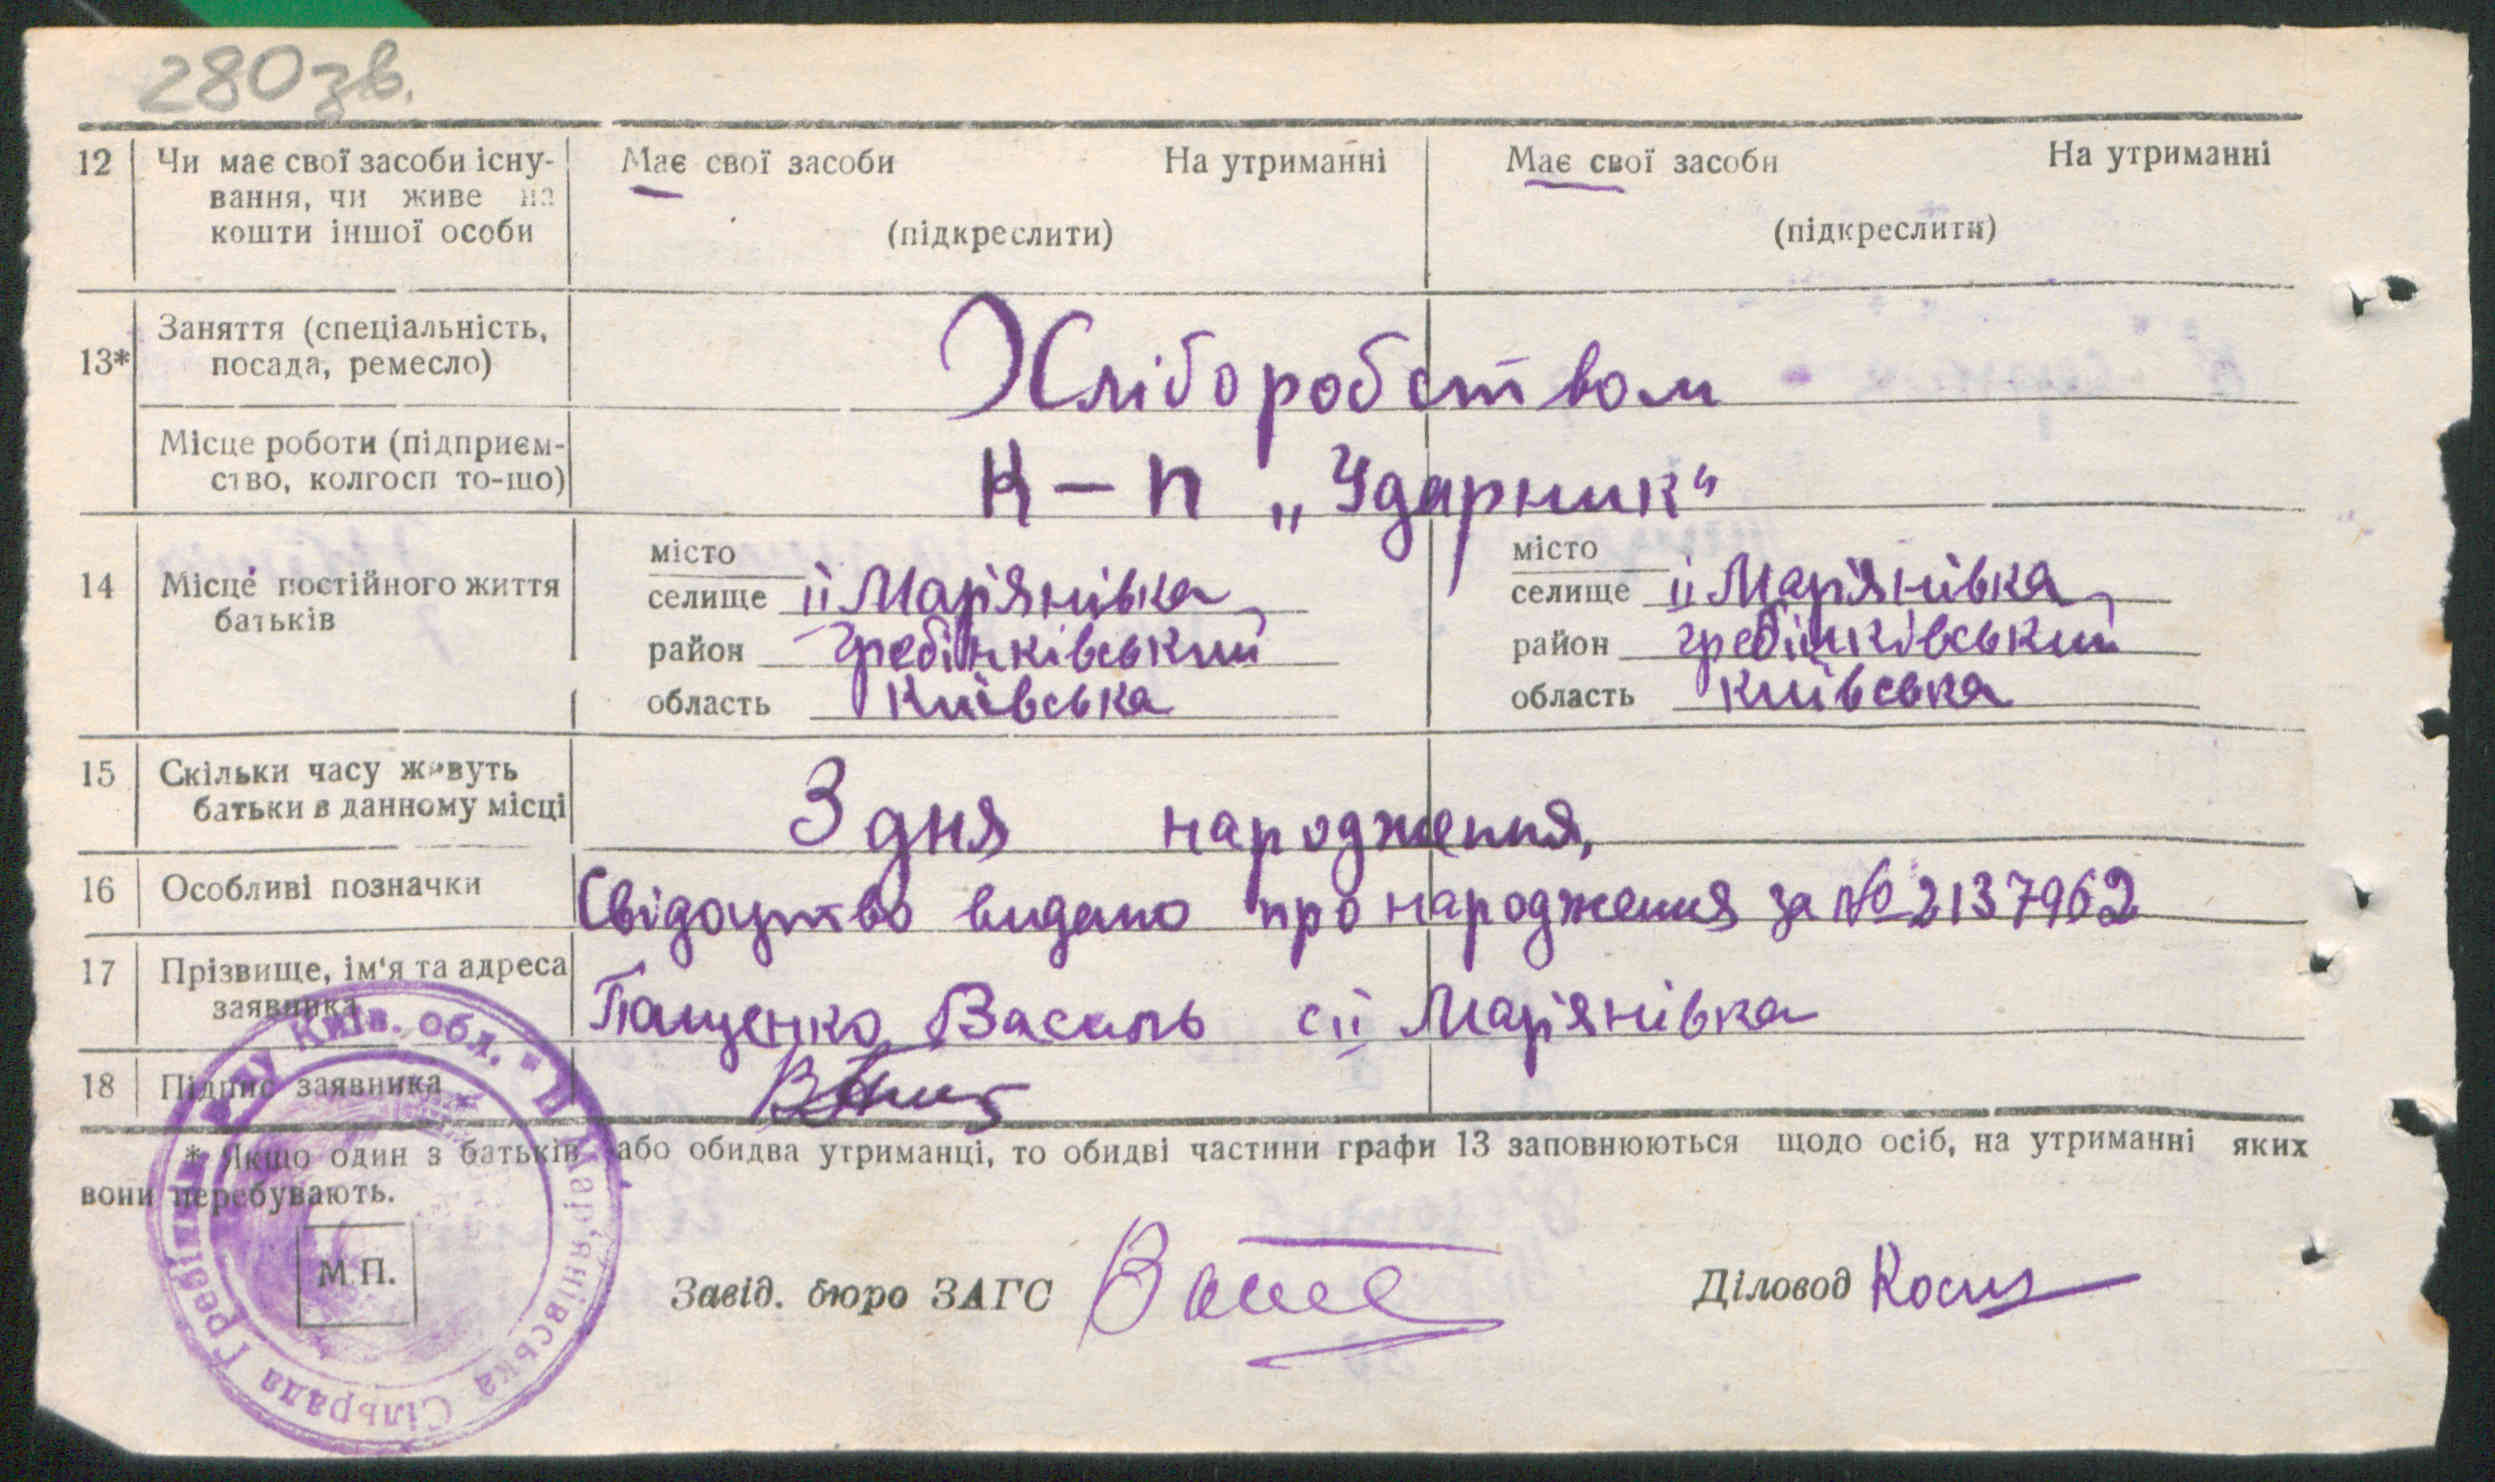 280 зв.
12 Чи має свої засоби існу- Має свої засоби На утриманні Має свої засоби На утриманні
вання, чи живе на
кошти іншої особи (підкреслити) (підкреслити)
Заняття (спеціальність,
13* посада, ремесло) Хліборобством
Місце роботи (підприєм-
ство, колгосп то-що) К-п „Ударник“
місто місто
14 Місце постійного життя селище ІІ Мар'янівка, селище ІІ Мар'янівка,
батьків район Гребінківський район Гребінківський
область Київська область Київська
15 Скільки часу живуть
батьки в данному місці З дня народження,
16 Особливі позначки Свідоцтво видано про народження за № 2137962
17 Прізвище, ім‘я та адреса
заявника Пащенко Василь с ІІ Мар'янівка
18 Підпис заявника
* Якщо один з батьків або обидва утриманці, то обидві частини графи 13 заповнюються щодо осіб, на утриманні яких
вони перебувають.
М.П. Завід. бюро ЗАГС Діловод
Київ. обл. * ІІ Мар'янівська Сільрада Гребінк